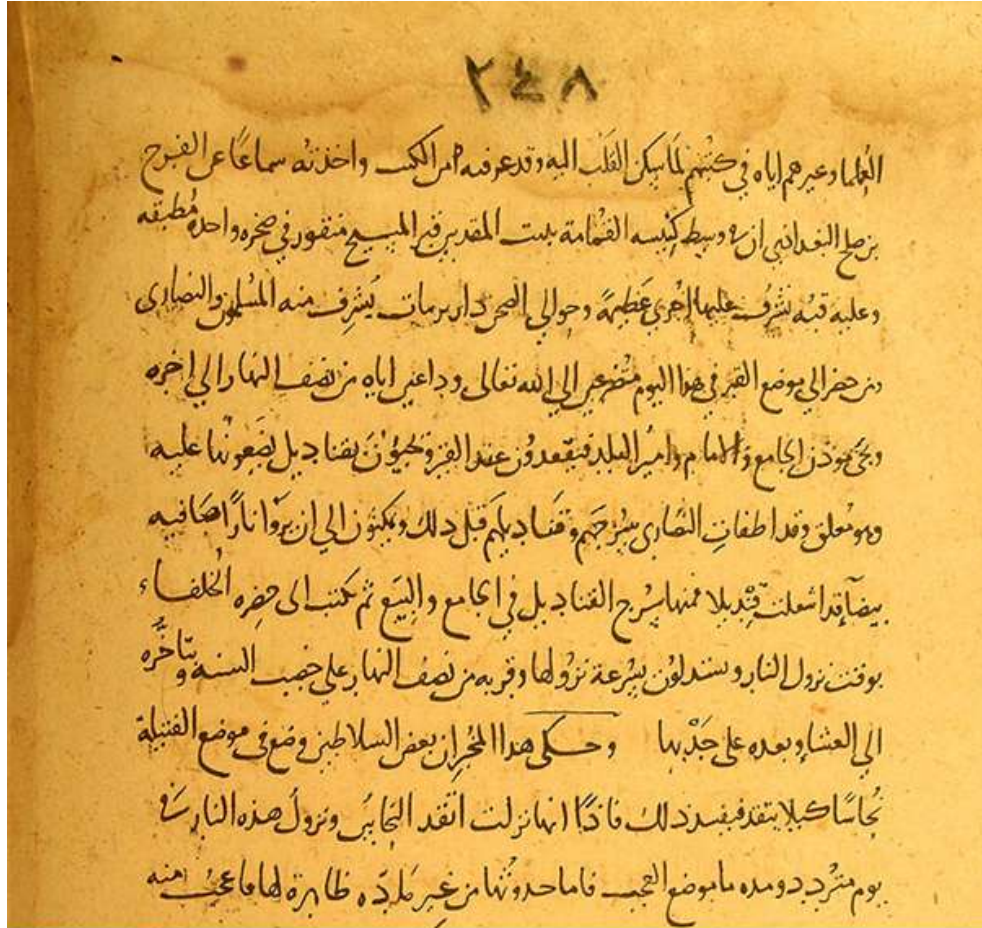 ٢٤٨
العلما وغيرهم اياه في كتبهم لما سكن القلب اليه وقد عرفته من الكتب واخذته سماعًا عن الفرج
بن صلح البغداني ان في وسط كنيسه القمامة ببيت المقدس قبر المسيح منقور في صخره واحده مُطبقه
وعليه قبه تشرف عليها اخري عظيمة وحوالي الصخر دار برمات يُشرف منه المسلمون والنصاري
ومن حضر الي موضع القبر في هذا اليوم متضرعين الي الله تعالى وداعين اياه من نصف النهار الي اخره
ويجي موذن الجامع والامام وامير البلد فيقعدون عند القبر ويجيؤن بقناديل يضعونها عليه
وهو مغلق وقد اطفات النصاري سرجهم وقناديلهم قبل ذلك ويمكثون الي ان يروا نارًا صافيه
بيضآ قد اشعلت قنديلا فمنها يسرج القناديل في الجامع والبيع ثم يكتب الى حضره الخلفاء
بوقت نزول النار ويستدلون بسرعة نزولها وقربه من نصف النهار على خصب السنه وبتاخره
الي العشا وبعده على جدبها وحكى هدا المخبر ان بعض السلاطين وضع في موضع الفتيلة
نحاسًا كيلا يتقد فيفسد ذلك فاذًا انها نزلت اتقد النحاس ونزول هذه النار في
يوم متردد ومده ما موضع العجب فاما حدوثها من غير مادّه ظاهرة لها فاعجب منه